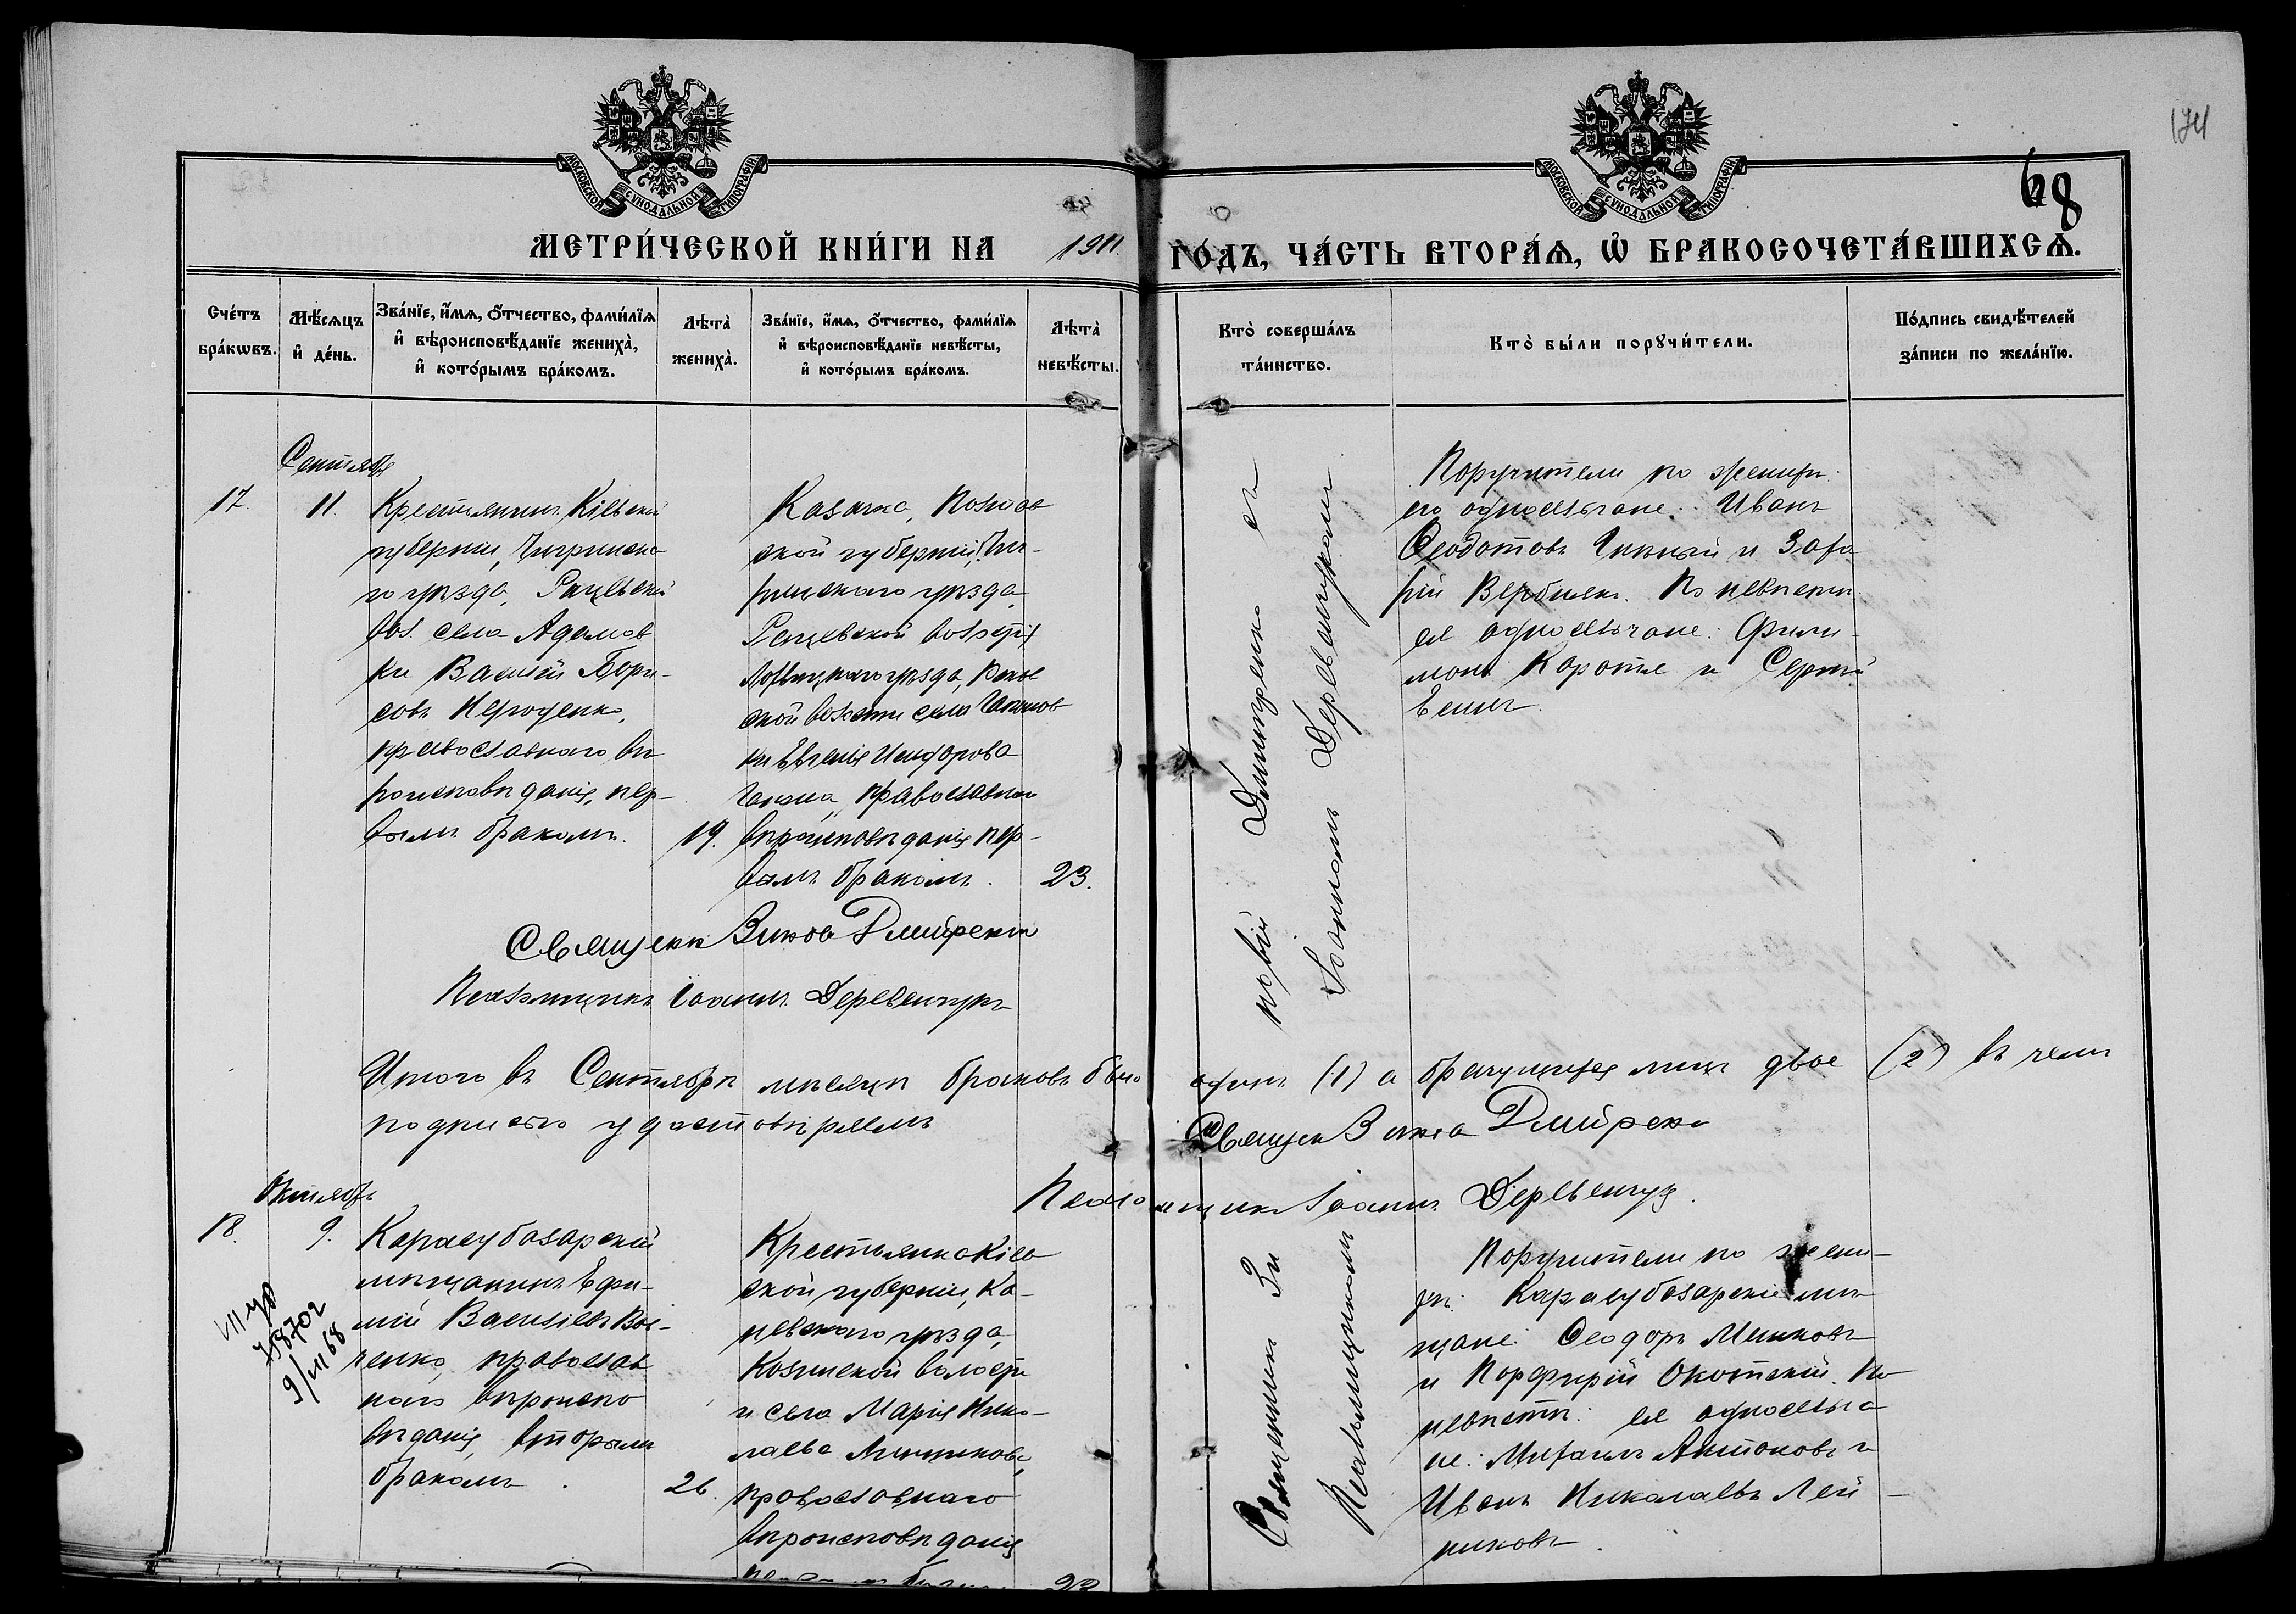 174
68
МОСКОВСКОЙ СѴНОДАЛЬНОЙ ТИПОГРАФІИ
МОСКОВСКОЙ СѴНОДАЛЬНОЙ ТИПОГРАФІИ
МЕТРИ́ЧЕСКОЙ КНИ́ГИ НА 1911 ГО́ДЪ, ЧА́СТЬ ВТОРА́Ѧ, Ѡ҆ БРАКОСОЧЕТА́ВШИХСѦ.
Сче́тъ бра́кѡвъ.
Мѣ́сѧцъ и҆ де́нь.
Зва́нїе, и҆́мѧ, ѻ҆́тчество, фами́лїѧ
и҆ вѣроисповѣ́данїе жениха̀,
и҆ кото́рымъ бра́комъ.
Лѣта̀ жениха̀.
Зва́нїе, и҆́мѧ, ѻ҆́тчество, фами́лїѧ
и҆ вѣроисповѣ́данїе невѣ́сты,
и҆ кото́рымъ бра́комъ.
Лѣта̀ невѣ́сты.
Кто̀ соверша́лъ
та́инство.
Кто̀ бы́ли порꙋчи́тели.
По́дпись свидѣ́телей
за́писи по жела́нїю.
Сентябрь
17.
11.
Крестьянинъ Кіевской
губерніи, Чигринска
го уѣзда, Рацевской
вол. села Адамов
ки Василій Бори-
совъ
православнаго вѣ
роисповѣданія, пер-
вымъ бракомъ.
19.
Казачка, Полтав
ской губерніи,
ринскаго уѣзда,
Рацевской волости
Лохвицкаго уѣзда,
ской волости села
ки Евгенія Исидорова
православнаго
вѣроисповѣданія пер-
вымъ бракомъ.
23.
новій Димитренко съ
Іоанномъ Деревенчукомъ
Поручители по женихѣ:
его односельчане: Иванъ
Ѳеодотовъ и Заха
рій Вербнякъ. По невѣстѣ
ея односельчане: Фили-
монъ и Сергій
Священ Зинов Дмитренко
Псаломщикъ Іоаннъ Деревенчукъ
Итого въ Сентябрѣ мѣсяцѣ браковъ было одинъ (1) а брачущихся лицъ двое (2) въ чемъ
подписью удостовѣряемъ
Священ Дмитренко
Псаломщикъ Іоаннъ Деревенчук.
Октябрь
18.
9.
9/III 68
Карасубазарскій
мѣщанинъ Ефи-
мій Васильевъ Вов-
ченко, православ
наго вѣроиспо
вѣданія, вторымъ
бракомъ.
26.
Крестьянка Кіев
ской губерніи, Ка-
невскаго уѣзда,
Козинской волости
и села Марія Нико-
лаева
православнаго
вѣроисповѣданія
23
Священникъ Зи
Псаломщикомъ
Поручители по жени-
хѣ: Карасубазарскіе мѣ
щане: Ѳеодоръ Мешковъ
и Порфирій Окотскій. По
невѣстѣ: ея односельча
не: Михаилъ Антоновъ и
Иванъ Николаевъ Лей-
никовъ.